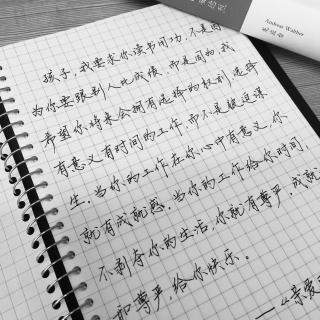 孩子,我要求你读书用功,不是因
为你要跟别人比成绩,而是因为,我
希望你将来会拥有选择的权利,选择
有意义有时间的工作,而不是被迫谋
生。当你的工作在你心中有意义,你
就有成就感。当你的工作给你时间
不剥夺你的生活,你就有尊严。成就
和尊严,给你快乐。
——《亲爱
Andreas Walther
龙应台